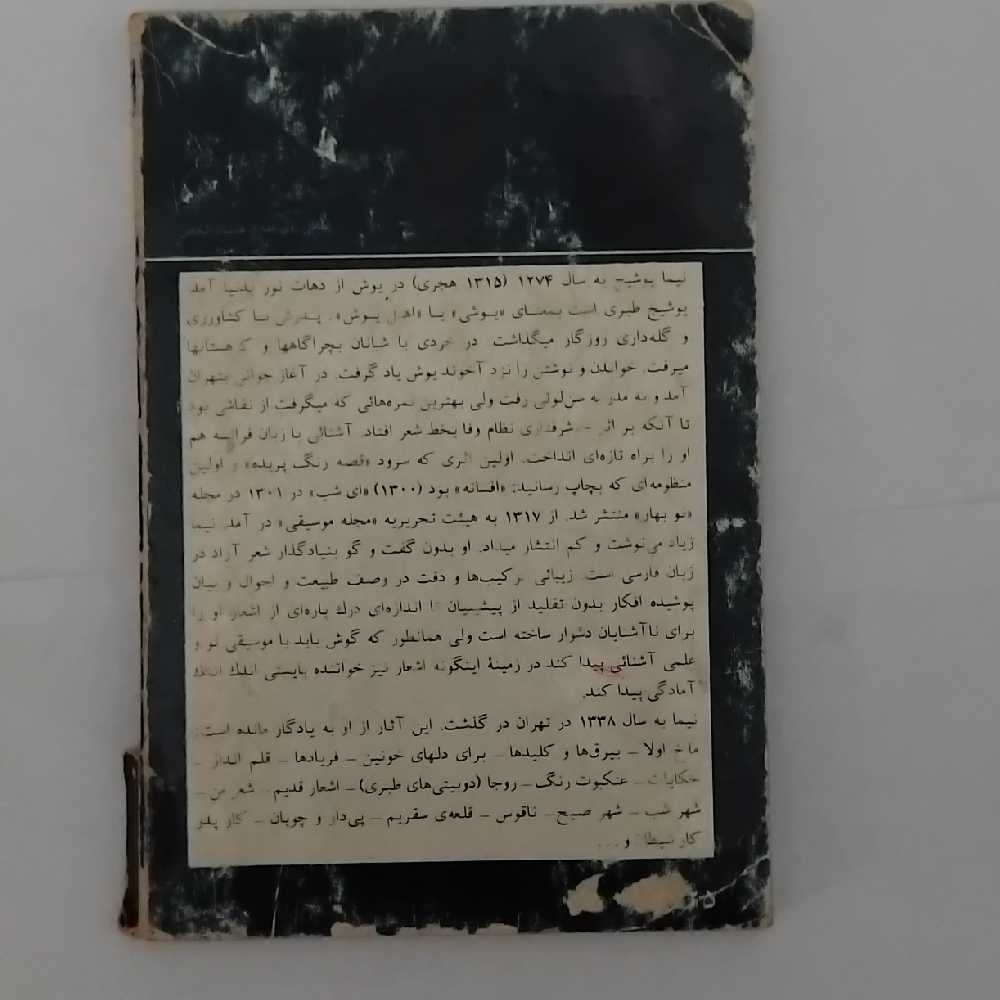 نیما یوشیج به سال ۱۲۷۴ (۱۳۱۵ هجری) در یوش از دهات نور بدنیا آمد
یوشیج طبری است بمعنـای «یـوشی» یـا «اهـل یـوش». پـدرش بـا کشاورزی
و گله‌داری روزگار میگذاشت. در خردی با شبانان بچراگاهها و کوهستانها
میرفت. خواندن و نوشتن را نزد آخوند یوش یاد گرفت. در آغاز جوانی بتهران
آمد و به مدرسه سن‌لوئی رفت ولی بهترین نمره‌هائی که میگرفت از نقاشی بود
تا آنکه بر اثر شرفداری نظام وفا بخط شعر افتاد. آشنائی با زبان فرانسه هم
او را براه تازه‌ای انداخت. اولین اثری که سرود «قصه رنگ پریده» و اولین
منظومه‌ای که بچاپ رسانید: «افسانه» بود (۱۳۰۰) «ای شب» در ۱۳۰۱ در مجله
«نو بهار» منتشر شد. از ۱۳۱۷ به هیئت تحریریه «مجله موسیقی» در آمد. نیما
زیاد می‌نوشت و کم انتشار میداد. او بدون گفت و گو بنیادگذار شعر آزاد در
زبان فارسی است. زیبائی ترکیب‌ها و دقت در وصف طبیعت و احوال و بیان
پوشیده افکار بدون تقلید از پیشینیان تا اندازه‌ای درك پاره‌ای از اشعار او را
برای ناآشنایان دشوار ساخته است ولی همانطور که گوش باید با موسیقی نو و
علمی آشنائی پیدا کند در زمینهٔ اینگونه اشعار نیز خواننده بایستی اندك اندك
آمادگی پیدا کند.
نیما به سال ۱۳۳۸ در تهران در گذشت. این آثار از او به یادگار مانده است:
ماخ اولا ــ بیرق‌ها و کلیدها ــ برای دلهای خونین ــ فریادها ــ قلم انداز ــ
حکایات ــ عنکبوت رنگ ــ روجا (دوبیتی‌های طبری) ــ اشعار قدیم ــ شعر من ــ
شهر شب ــ شهر صبح ــ ناقوس ــ قلعه‌ی سقریم ــ پی‌دار و چوپان ــ کار پدر
کار شیطان و ...